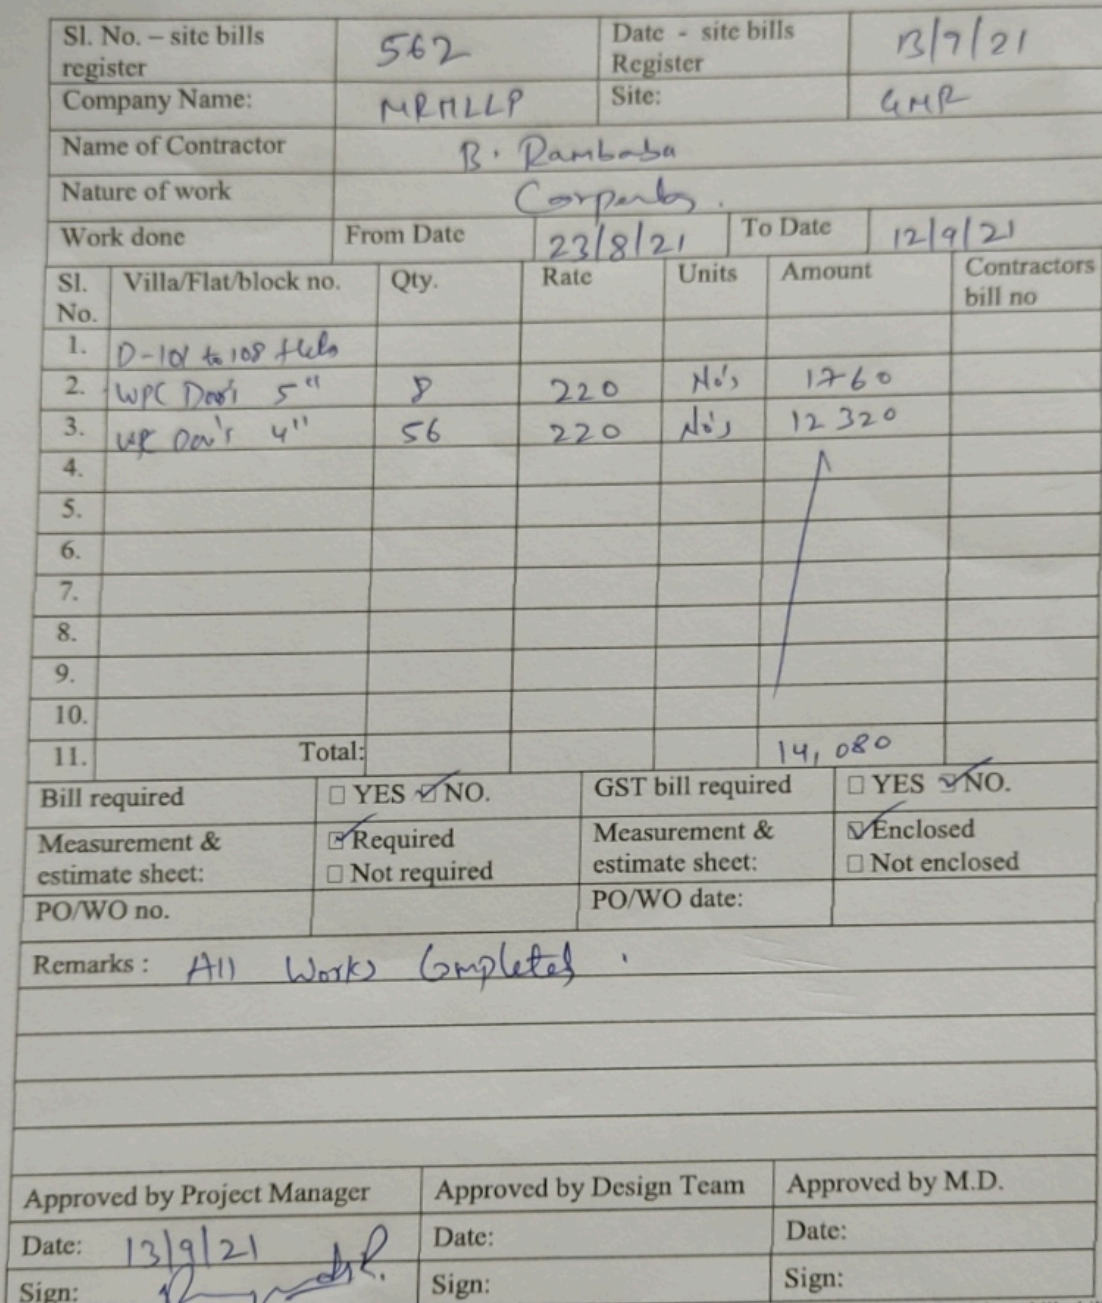 Sl. No. – site bills register 562 Date - site bills Register 13/9/21
Company Name: MRMLLP Site: GMR
Name of Contractor B. Rambabu
Nature of work
Work done From Date 23/8/21 To Date 12/9/21
Sl. No. Villa/Flat/block no. Qty. Rate Units Amount Contractors bill no
1. D-101 to 108
2. WPC 5" 8 220 No's 1760
3. 4" 56 220 No's 12320
4.
5.
6.
7.
8.
9.
10.
11. Total: 14,080
Bill required ☐ YES ☑ NO. GST bill required ☐ YES ☑ NO.
Measurement & estimate sheet: ☑ Required ☐ Not required Measurement & estimate sheet: ☑ Enclosed ☐ Not enclosed
PO/WO no. PO/WO date:
Remarks : All Works Completed .
Approved by Project Manager Approved by Design Team Approved by M.D.
Date: 13/9/21 Date: Date:
Sign: Sign: Sign: